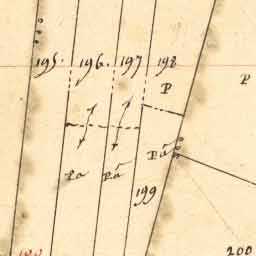 195. 196. 197 198
P
P
Pa
Pa Pa
199
200